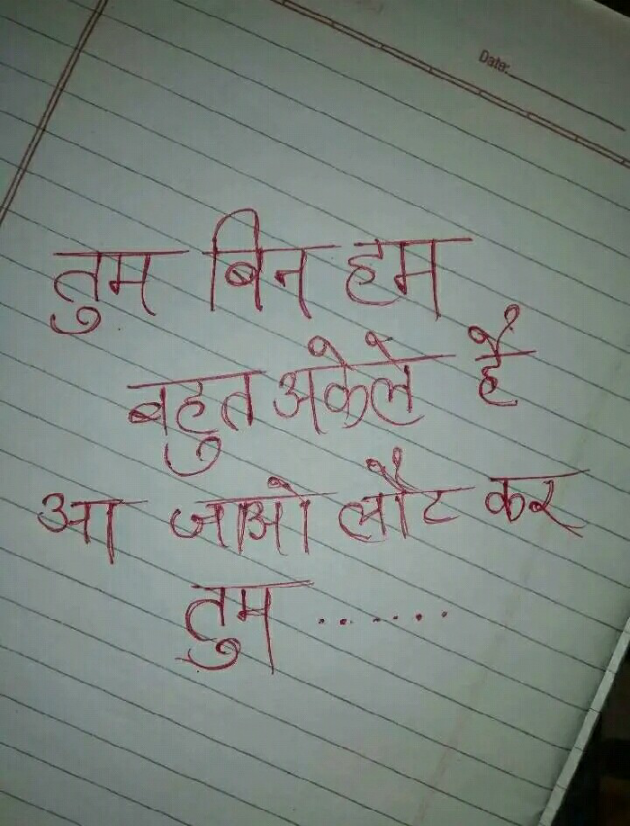 Date:
तुम बिन हम
बहुत अकेले है
आ जाओ लौट कर
तुम .......